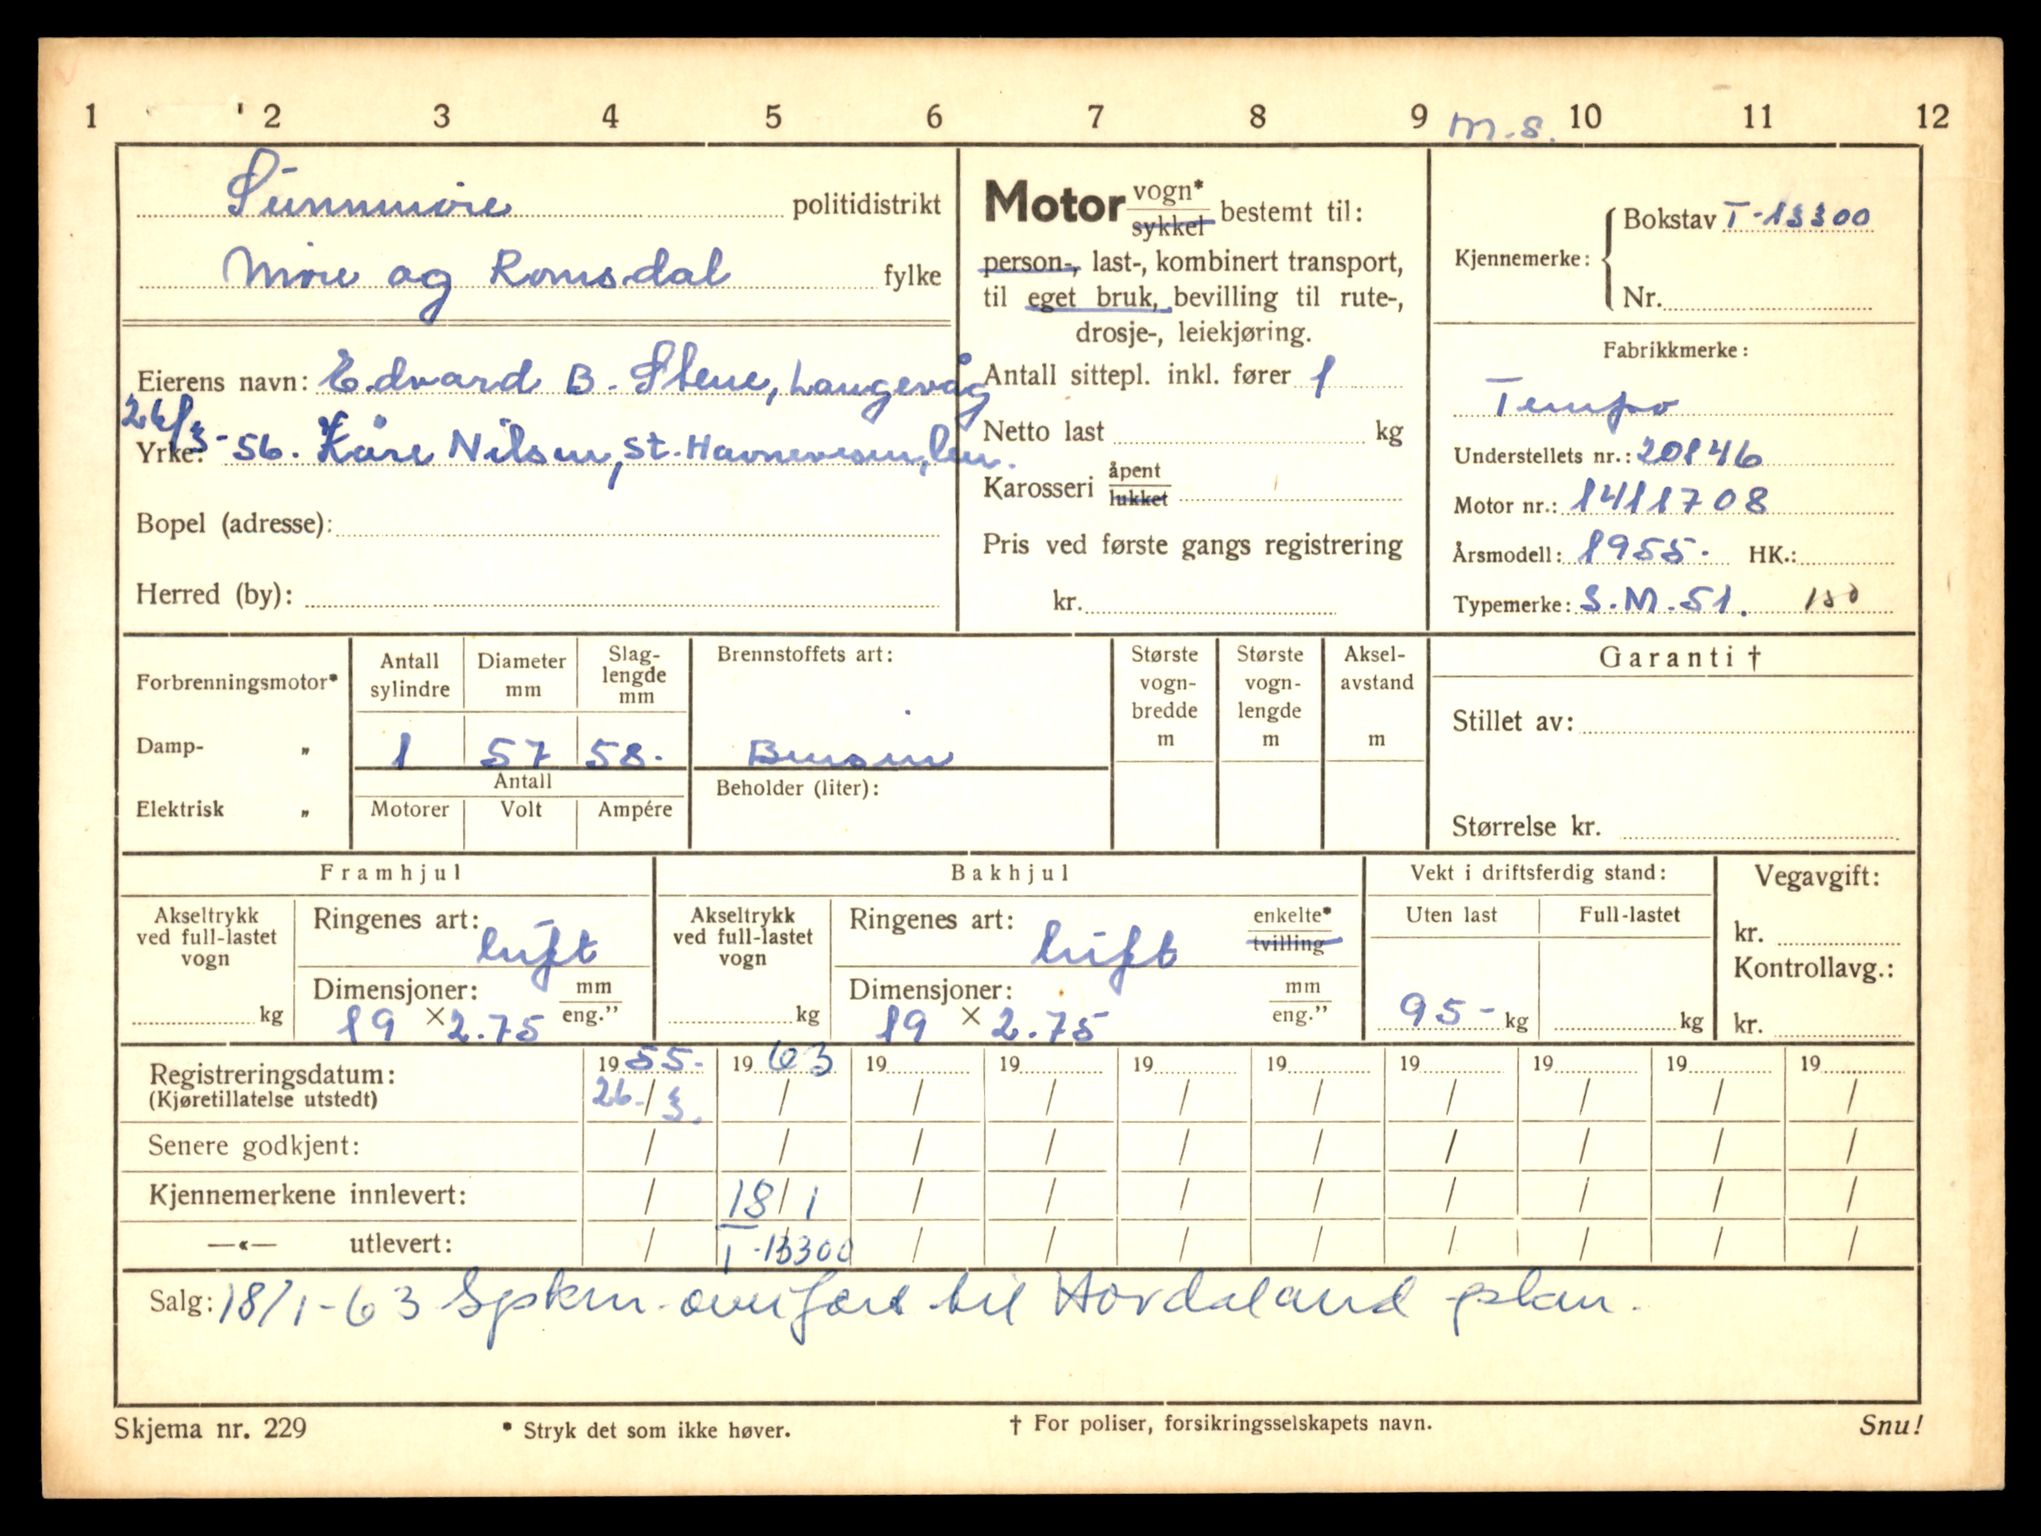 1 2 3 4 5 6 7 8 9 m.s. 10 11 12
Sunnmøre politidistrikt
Møre og Romsdal fylke
Eierens navn: Edvard B. Stene, Langevåg
26/3-56. Kåre Nilsen, st. Havnevesen,
Yrke:
Bopel (adresse):
Herred (by):
Motor vogn* sykkel bestemt til:
person-, last-, kombinert transport,
til eget bruk, bevilling til rute-,
drosje-, leiekjøring.
Antall sittepl. inkl. fører 1
Netto last kg
Karosseri åpent lukket
Pris ved første gangs registrering
kr.
Kjennemerke: Bokstav T-13300
Nr.
Fabrikkmerke:
Tempo
Understellets nr.: 20146
Motor nr.: 1411708
Årsmodell: 1955. HK.:
Typemerke: S.M.51. 150
Forbrenningsmotor*
Damp- „
Elektrisk „
Antall sylindre
Diameter mm
Slag-lengde mm
1 57 58.
Antall
Motorer Volt Ampére
Brennstoffets art:
Bensin
Beholder (liter):
Største vogn-bredde m
Største vogn-lengde m
Aksel-avstand m
Garanti †
Stillet av:
Størrelse kr.
Framhjul
Akseltrykk ved full-lastet vogn
kg
Ringenes art: luft
Dimensjoner: mm eng.”
19 × 2.75
Bakhjul
Akseltrykk ved full-lastet vogn
kg
Ringenes art: luft enkelte* tvilling
Dimensjoner: mm eng.”
19 × 2.75
Vekt i driftsferdig stand:
Uten last Full-lastet
95- kg kg
Vegavgift:
kr.
Kontrollavg.:
kr.
Registreringsdatum: 1955. 1963 19 19 19 19 19 19 19 19
(Kjøretillatelse utstedt) 26./3. / / / / / / / / /
Senere godkjent: / / / / / / / / / /
Kjennemerkene innlevert: / 18/1 / / / / / / / /
—«— utlevert: / T-13300 / / / / / / / /
Salg: 18/1-63 Spkm. overført til Hordaland
Skjema nr. 229 * Stryk det som ikke høver. † For poliser, forsikringsselskapets navn. Snu!